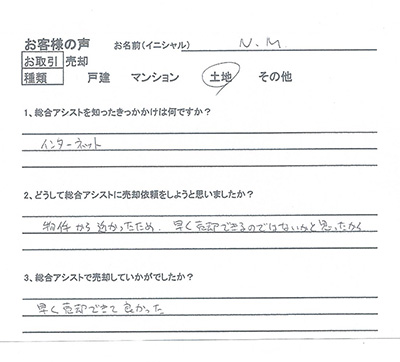 お客様の声 お名前(イニシャル) N.M
お取引 売却
種類 戸建 マンション 土地 その他
1、総合アシストを知ったきっかけは何ですか?
インターネット
2、どうして総合アシストに売却依頼をしようと思いましたか?
物件から近かったため、早く売却できるのではないかと思ったから
3、総合アシストで売却していかがでしたか?
早く売却できて良かった